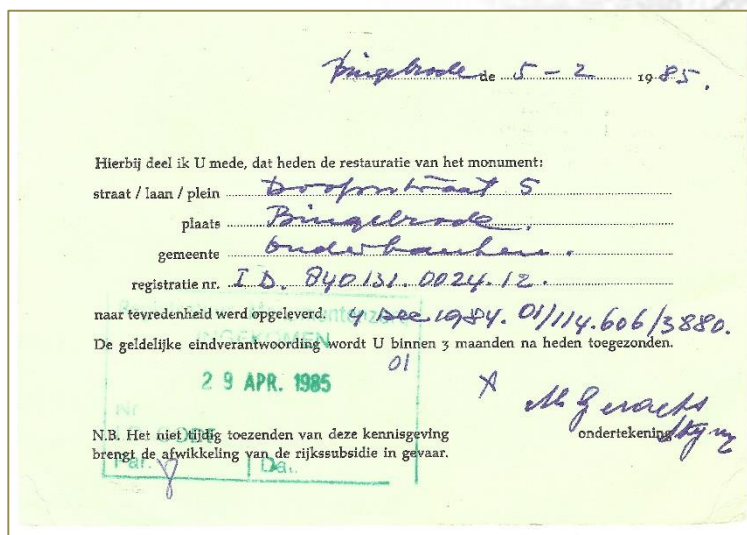 Bingelrade de 5 - 2 1985.
Hierbij deel ik U mede, dat heden de restauratie van het monument:
straat / laan / plein Dorpsstraat 5
plaats Bingelrade.
gemeente Onderbanken.
registratie nr. I D. 840131.0024.12.
naar tevredenheid werd opgeleverd. 4 Dec 1984. 01/114.606/3880.
De geldelijke eindverantwoording wordt U binnen 3 maanden na heden toegezonden.
INGEKOMEN
01
29 APR. 1985
X
Nr
N.B. Het niet tijdig toezenden van deze kennisgeving
ondertekening
brengt de afwikkeling van de rijkssubsidie in gevaar.
Par.